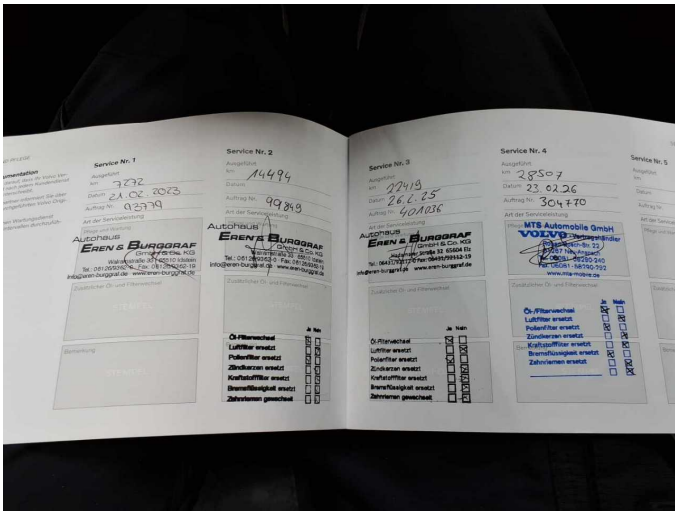 Service Nr. 1
Ausgeführt
km 7272
Datum 21.02.2023
Auftrag Nr. 93779
Art der Serviceleistung
Pflege und Wartung
Autohaus
EREN & BURGGRAF
GmbH & Co. KG
65510 Idstein
info@eren-burggraf.de www.eren-burggraf.de
Zusätzlicher Öl- und Filterwechsel
Bemerkung
Service Nr. 2
Ausgeführt
km 14494
Datum
Auftrag Nr. 99849
Art der Serviceleistung
Autohaus
EREN & BURGGRAF
GmbH & Co. KG
65510 Idstein
info@eren-burggraf.de www.eren-burggraf.de
Zusätzlicher Öl- und Filterwechsel
Ja Nein
Öl-Filterwechsel
Luftfilter ersetzt
Pollenfilter ersetzt
Zündkerzen ersetzt
Kraftstofffilter ersetzt
Bremsflüssigkeit ersetzt
Zahnriemen gewechselt
Service Nr. 3
Ausgeführt
km 22419
Datum 26.2.25
Auftrag Nr. 401036
Art der Serviceleistung
Autohaus
EREN & BURGGRAF
GmbH & Co. KG
65604 Elz
info@eren-burggraf.de www.eren-burggraf.de
Zusätzlicher Öl- und Filterwechsel
Ja Nein
Öl-Filterwechsel
Luftfilter ersetzt
Pollenfilter ersetzt
Zündkerzen ersetzt
Kraftstofffilter ersetzt
Bremsflüssigkeit ersetzt
Zahnriemen gewechselt
Service Nr. 4
Ausgeführt
km 28507
Datum 23.02.26
Auftrag Nr. 304770
Art der Serviceleistung
MTS Automobile GmbH
VOLVO-Vertragshändler
61267 Neu-Anspach
www.mts-mobile.de
Zusätzlicher Öl- und Filterwechsel
Ja Nein
Öl-/Filterwechsel
Luftfilter ersetzt
Pollenfilter ersetzt
Zündkerzen ersetzt
Kraftstofffilter ersetzt
Bremsflüssigkeit ersetzt
Zahnriemen ersetzt
Service Nr. 5
Ausgeführt
km
Datum
Auftrag Nr.